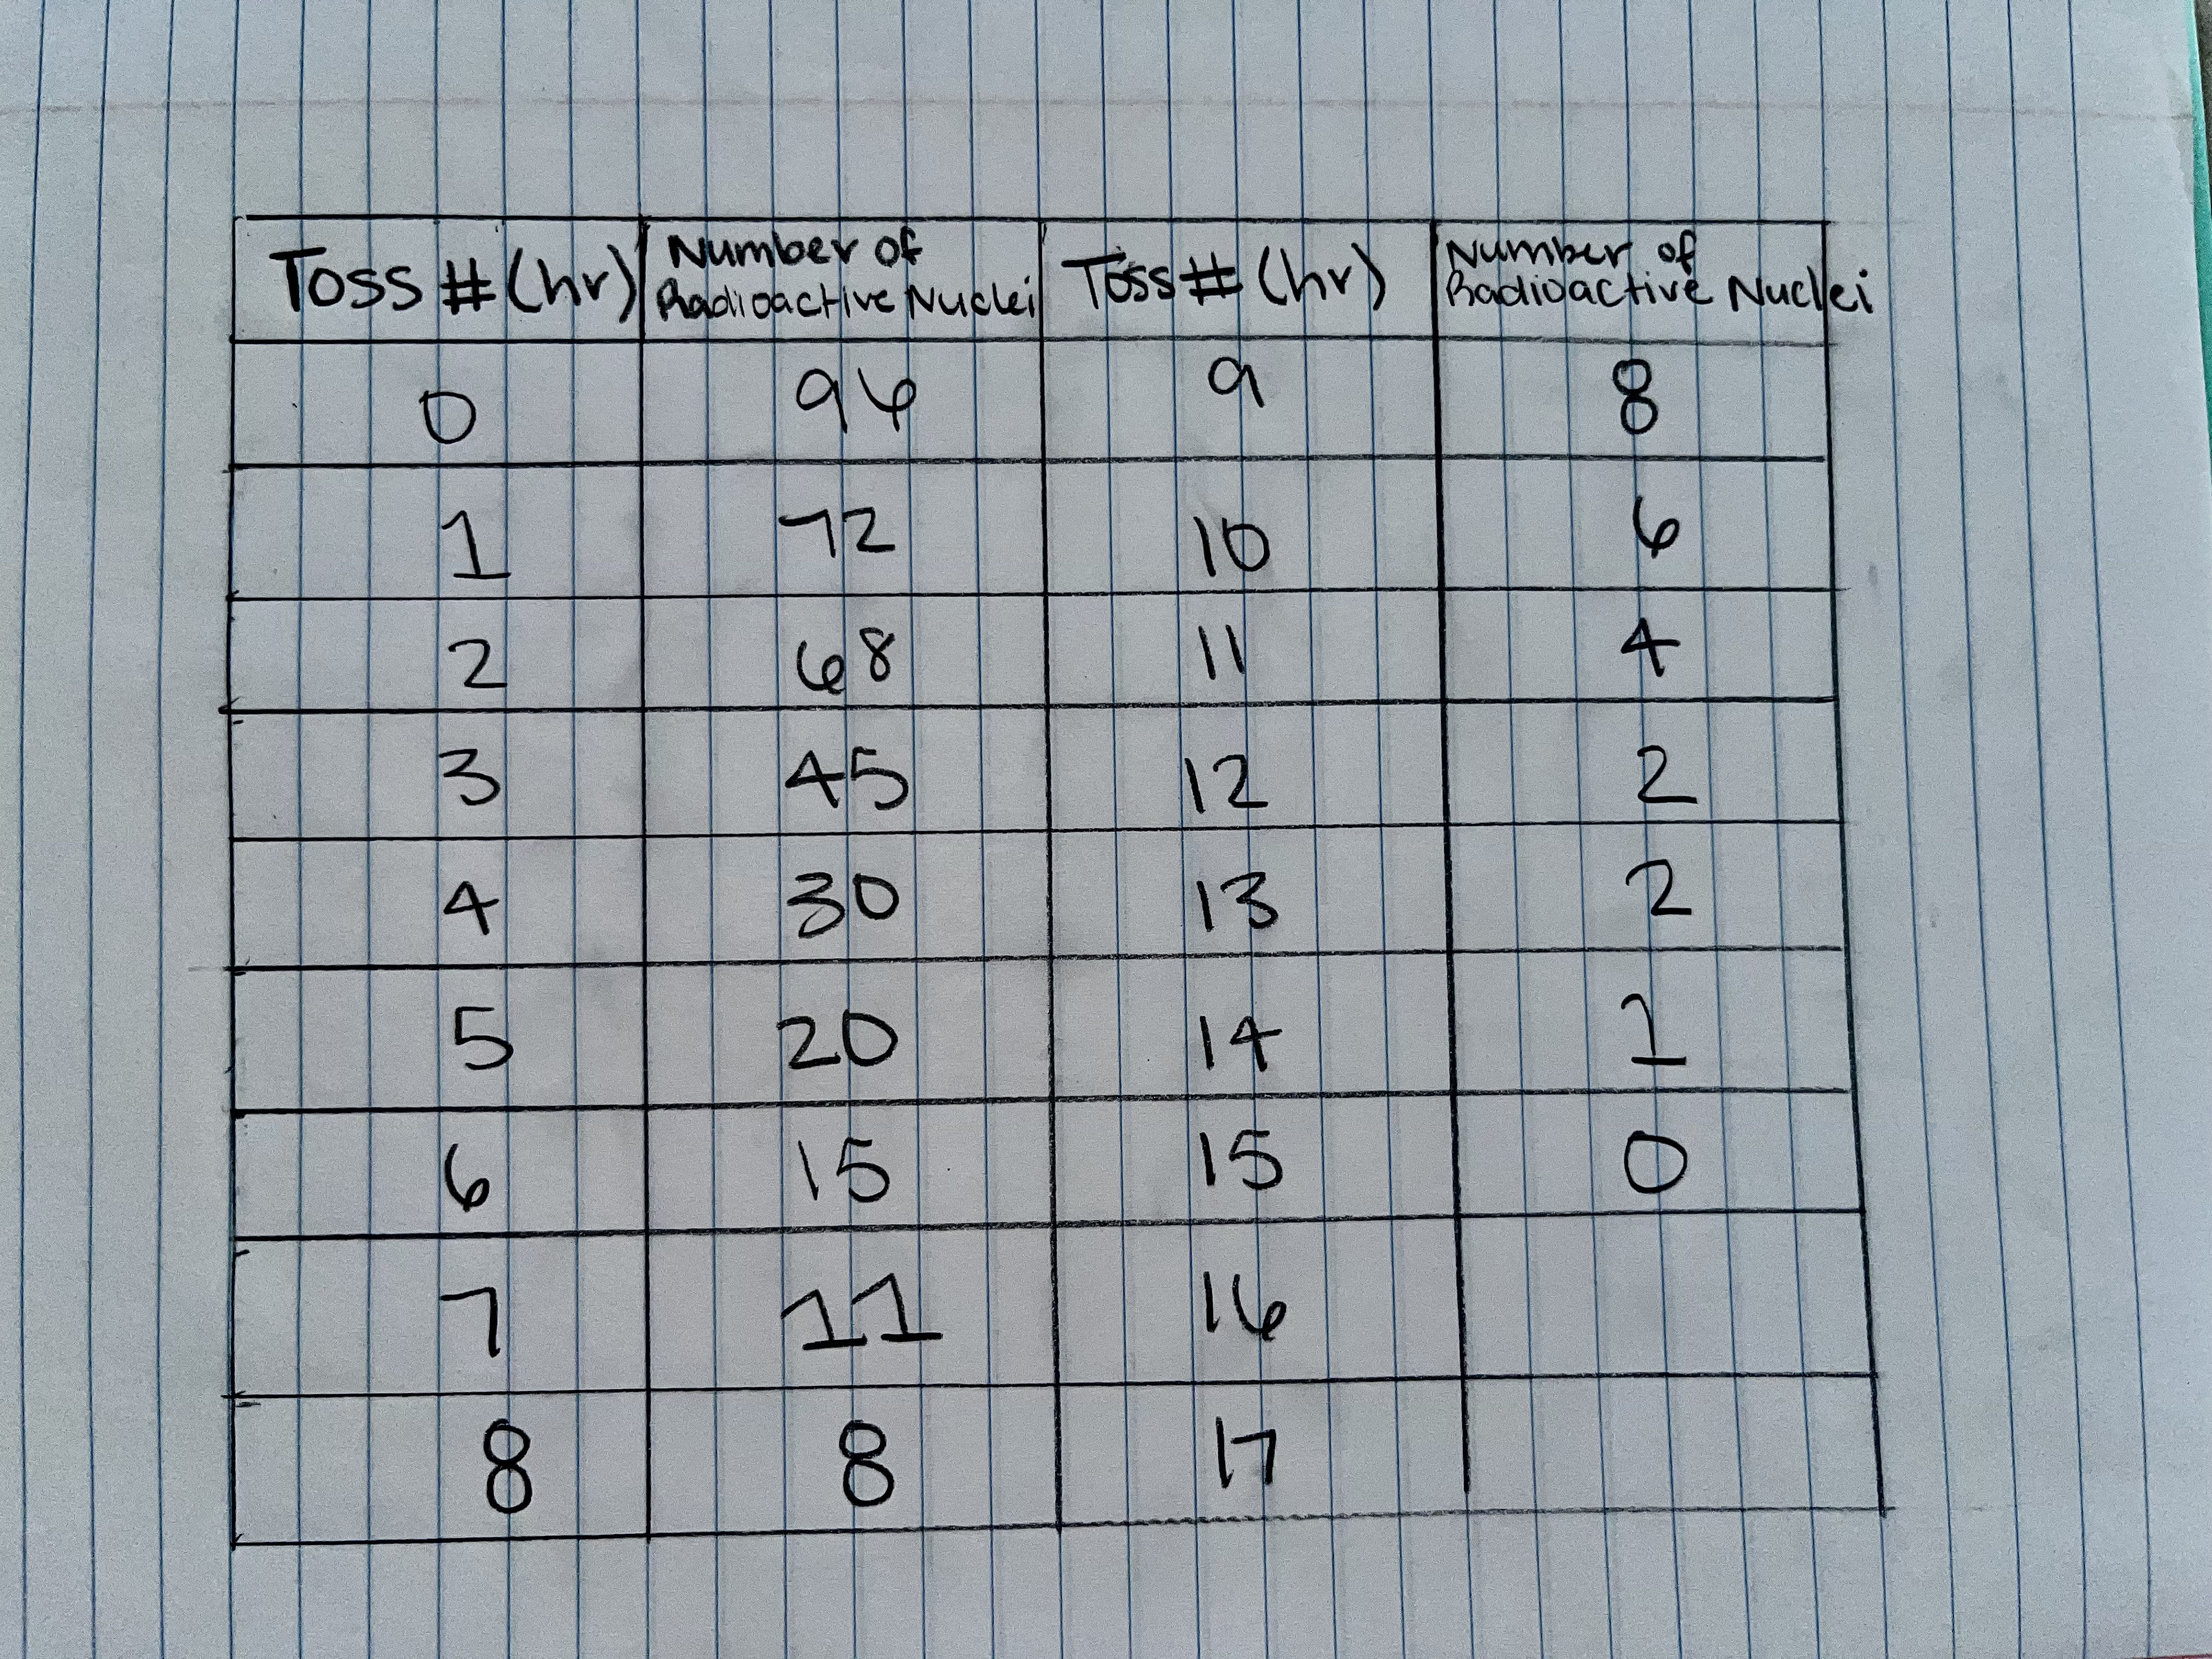 Toss # (hr) Number of Radioactive Nuclei Toss # (hr) Number of Radioactive Nuclei
0 96 9 8
1 72 10 6
2 68 11 4
3 45 12 2
4 30 13 2
5 20 14 1
6 15 15 0
7 11 16
8 8 17